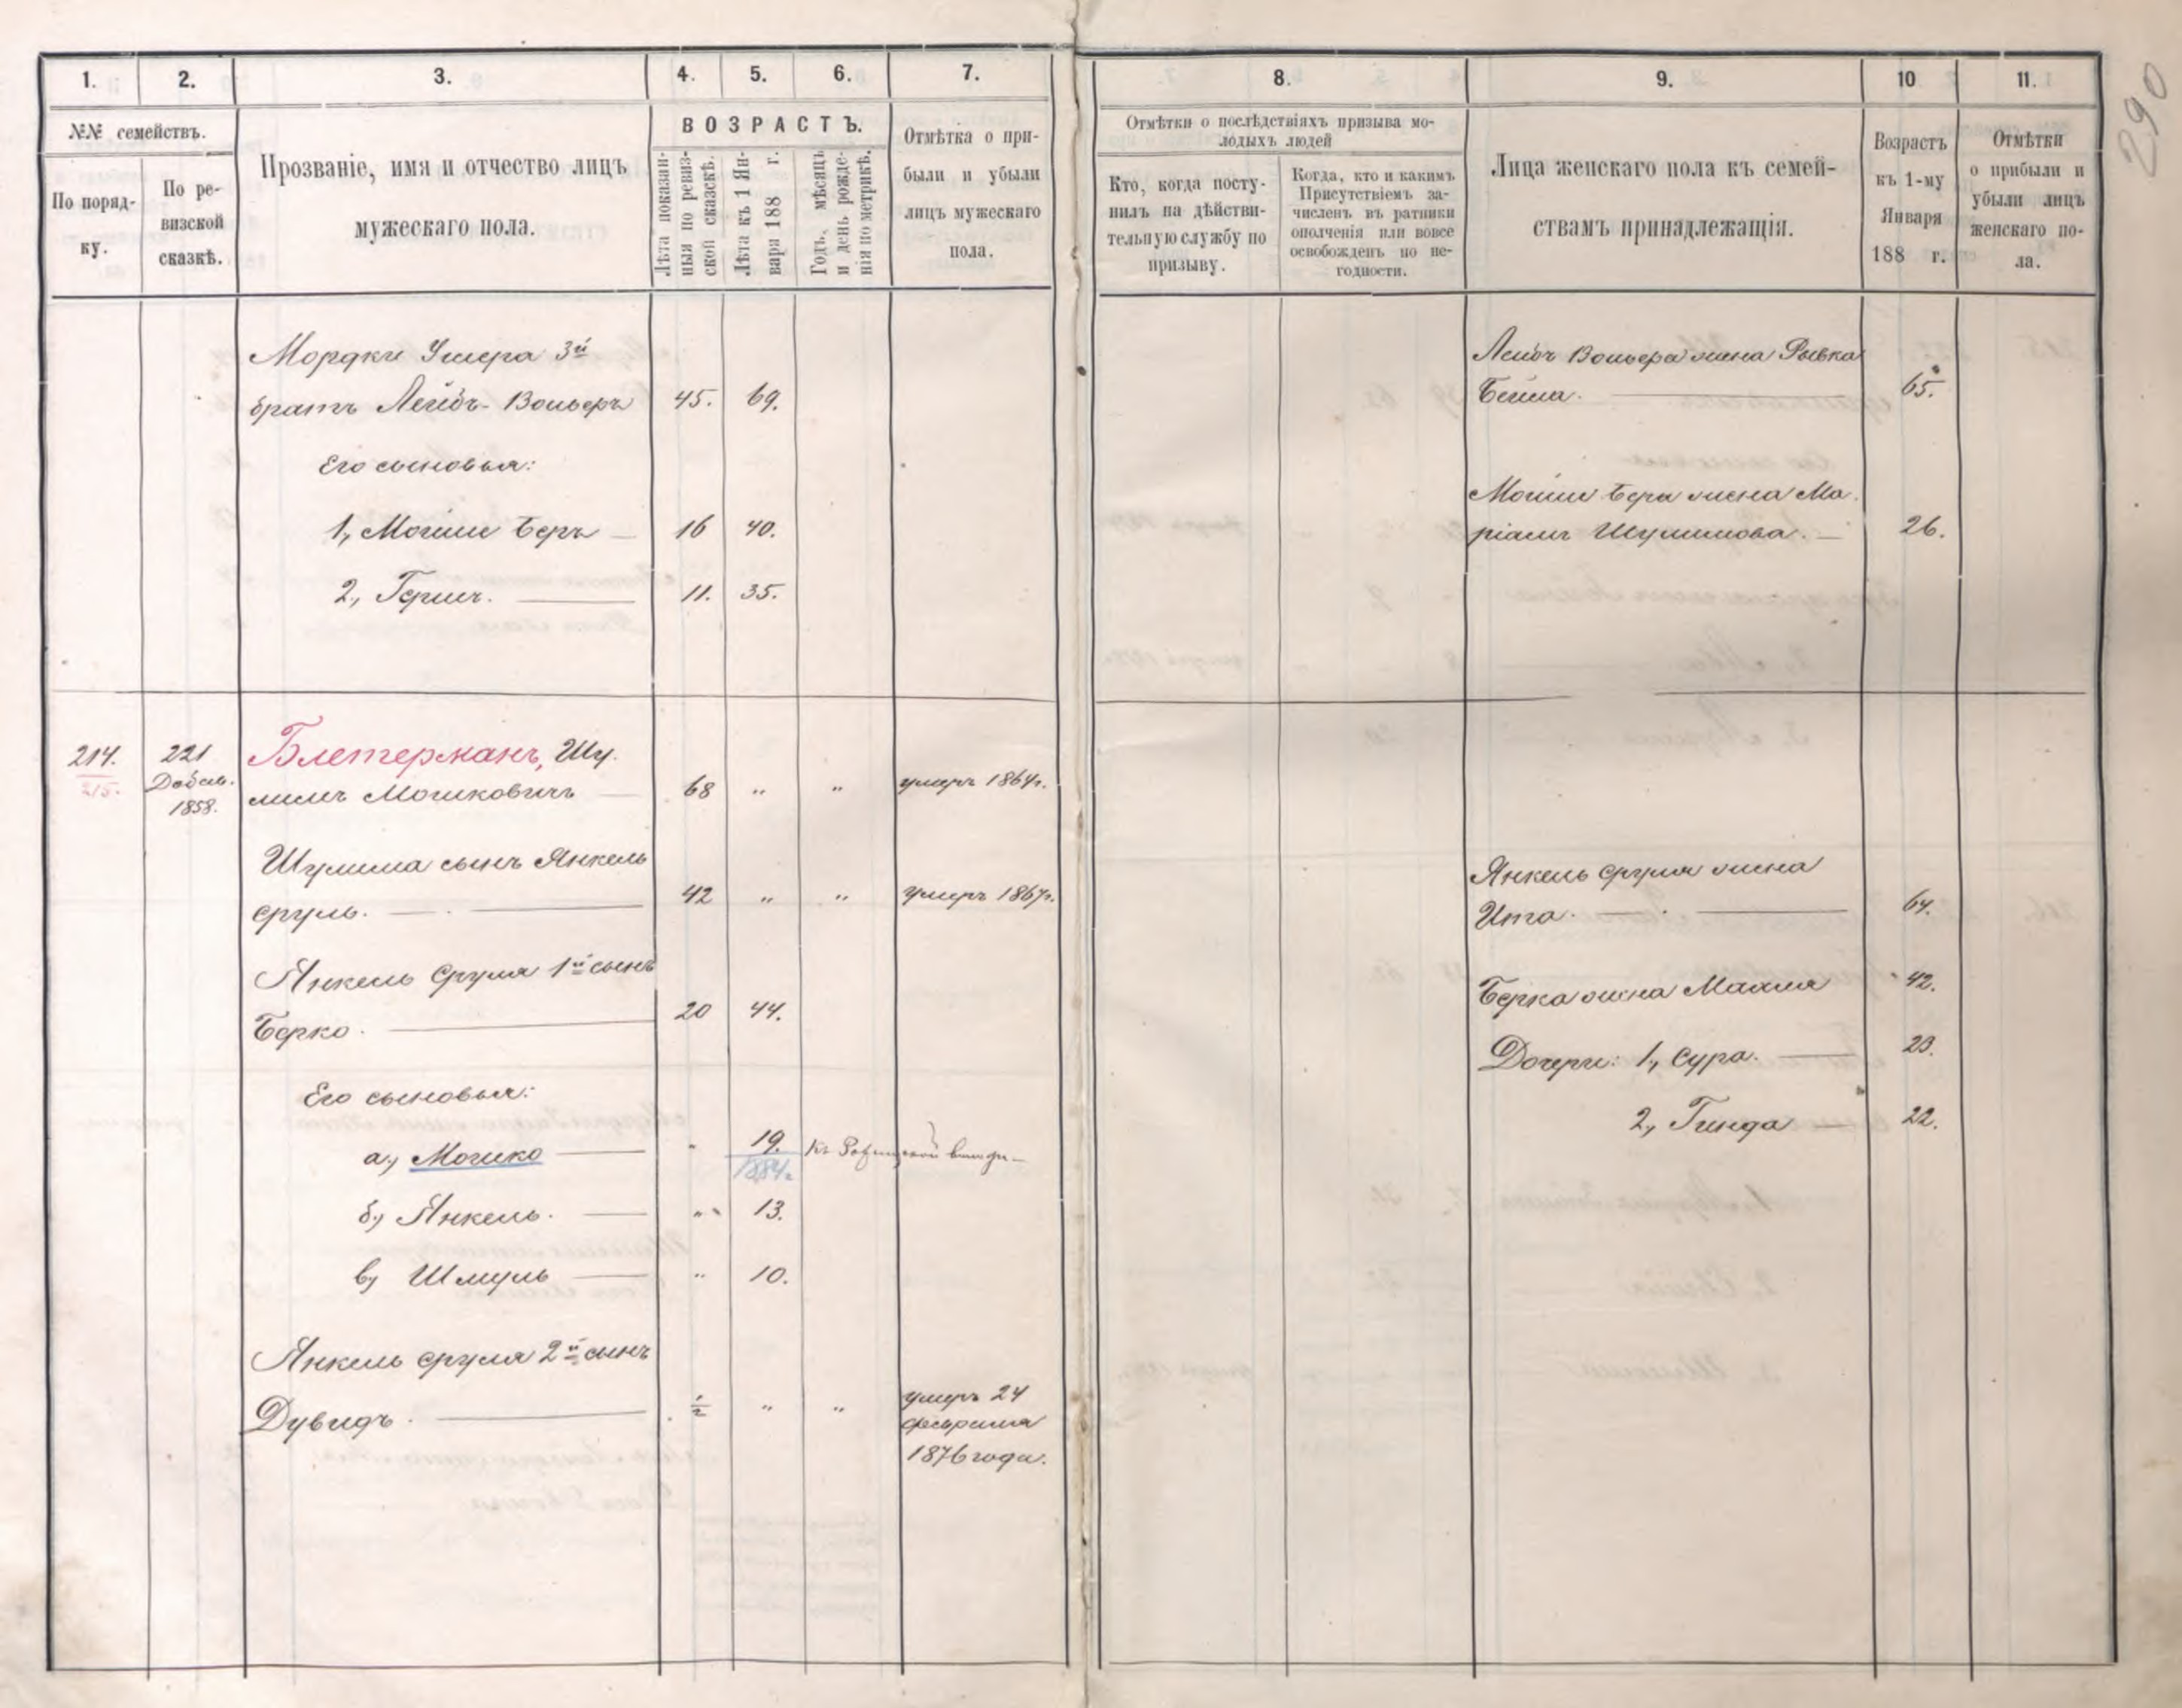 290
1.
2.
3.
4.
5.
6.
7.
8.
9.
10
11.
№№ семействъ.
По поряд-
ку.
По ре-
визской
сказкѣ.
Прозваніе, имя и отчество лицъ
мужескаго пола.
ВОЗРАСТЪ.
Лѣта показан-
ныя по ревиз-
ской сказкѣ.
Лѣта къ 1 Ян-
варя 188 г.
Годъ, мѣсяцъ
и день рожде-
нія по метрикѣ.
Отмѣтка о при-
были и убыли
лицъ мужескаго
пола.
Отмѣтки о послѣдствіяхъ призыва мо-
лодыхъ людей
Кто, когда посту-
пилъ на дѣйстви-
тельную службу по
призыву.
Когда, кто и какимъ
Присутствіемъ за-
численъ въ ратники
ополченія или вовсе
освобожденъ по не-
годности.
Лица женскаго пола къ семей-
ствамъ принадлежащія.
Возрастъ
къ 1-му
Января
188 г.
Отмѣтки
о прибыли и
убыли лицъ
женскаго по-
ла.
Мордки Ушера 3й
братъ Лейбъ-Вольферъ 45. 69.
Его сыновья:
1, Мошко Беръ — 16 40.
2, Гершъ. — 11. 35.
Лейбъ Вольфера жена Рывка
Бейла. — 65.
Мошки Бера жена Ма-
ріамъ Шулимова. — 26.
214. 221 Блетерманъ, Шу-
215. Добав. лимъ Мошковичъ — 68 " " умеръ 1864г.
1858.
Шулима сынъ Янкель
Сруль. — 42 " " умеръ 1867г.
Янкель Сруля 1й сынъ
Берко. — 20 44.
Его сыновья:
а, Мошко — " 19. Къ
1884г.
б, Янкель. — " 13.
в, Шмуль — " 10.
Янкель Сруля 2й сынъ
Дувидъ. — 1/2 " " умеръ 24
февраля
1876 года.
Янкель Сруля жена
Ита. — 64.
Берка жена Маля 42.
Дочери: 1, Сура. — 23.
2, Гинда — 22.